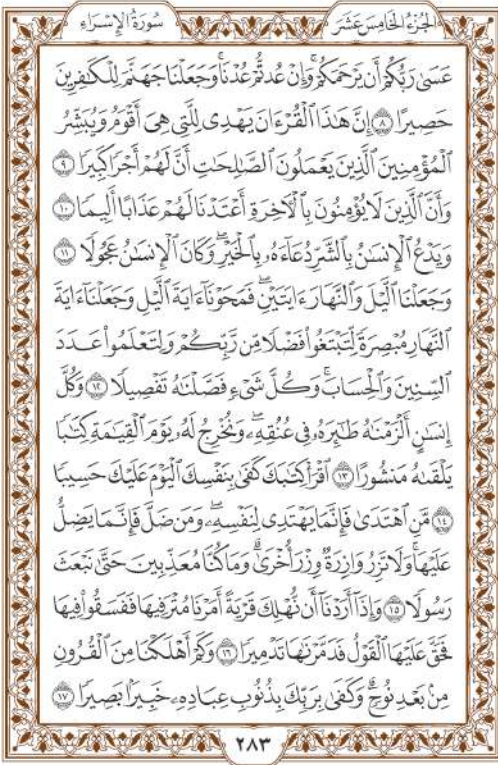 سُورَةُ الإِسْرَاءِ
الجُزْءُ الخَامِسَ عَشَرَ
عَسَىٰ رَبُّكُمْ أَن يَرْحَمَكُمْ ۚ وَإِنْ عُدتُّمْ عُدْنَا ۘ وَجَعَلْنَا جَهَنَّمَ لِلْكَٰفِرِينَ
حَصِيرًا ٨ إِنَّ هَٰذَا ٱلْقُرْءَانَ يَهْدِى لِلَّتِى هِىَ أَقْوَمُ وَيُبَشِّرُ
ٱلْمُؤْمِنِينَ ٱلَّذِينَ يَعْمَلُونَ ٱلصَّٰلِحَٰتِ أَنَّ لَهُمْ أَجْرًا كَبِيرًا ٩
وَأَنَّ ٱلَّذِينَ لَا يُؤْمِنُونَ بِٱلْءَاخِرَةِ أَعْتَدْنَا لَهُمْ عَذَابًا أَلِيمًا ١٠
وَيَدْعُ ٱلْإِنسَٰنُ بِٱلشَّرِّ دُعَآءَهُۥ بِٱلْخَيْرِ ۖ وَكَانَ ٱلْإِنسَٰنُ عَجُولًا ١١
وَجَعَلْنَا ٱلَّيْلَ وَٱلنَّهَارَ ءَايَتَيْنِ ۖ فَمَحَوْنَآ ءَايَةَ ٱلَّيْلِ وَجَعَلْنَآ ءَايَةَ
ٱلنَّهَارِ مُبْصِرَةً لِّتَبْتَغُوا۟ فَضْلًا مِّن رَّبِّكُمْ وَلِتَعْلَمُوا۟ عَدَدَ
ٱلسِّنِينَ وَٱلْحِسَابَ ۚ وَكُلَّ شَىْءٍ فَصَّلْنَٰهُ تَفْصِيلًا ١٢ وَكُلَّ
إِنسَٰنٍ أَلْزَمْنَٰهُ طَٰٓئِرَهُۥ فِى عُنُقِهِۦ ۖ وَنُخْرِجُ لَهُۥ يَوْمَ ٱلْقِيَٰمَةِ كِتَٰبًا
يَلْقَىٰهُ مَنشُورًا ١٣ ٱقْرَأْ كِتَٰبَكَ كَفَىٰ بِنَفْسِكَ ٱلْيَوْمَ عَلَيْكَ حَسِيبًا
١٤ مَّنِ ٱهْتَدَىٰ فَإِنَّمَا يَهْتَدِى لِنَفْسِهِۦ ۖ وَمَن ضَلَّ فَإِنَّمَا يَضِلُّ
عَلَيْهَا ۚ وَلَا تَزِرُ وَازِرَةٌ وِزْرَ أُخْرَىٰ ۗ وَمَا كُنَّا مُعَذِّبِينَ حَتَّىٰ نَبْعَثَ
رَسُولًا ١٥ وَإِذَآ أَرَدْنَآ أَن نُّهْلِكَ قَرْيَةً أَمَرْنَا مُتْرَفِيهَا فَفَسَقُوا۟ فِيهَا
فَحَقَّ عَلَيْهَا ٱلْقَوْلُ فَدَمَّرْنَٰهَا تَدْمِيرًا ١٦ وَكَمْ أَهْلَكْنَا مِنَ ٱلْقُرُونِ
مِنۢ بَعْدِ نُوحٍ ۗ وَكَفَىٰ بِرَبِّكَ بِذُنُوبِ عِبَادِهِۦ خَبِيرًۢا بَصِيرًا ١٧
٢٨٣